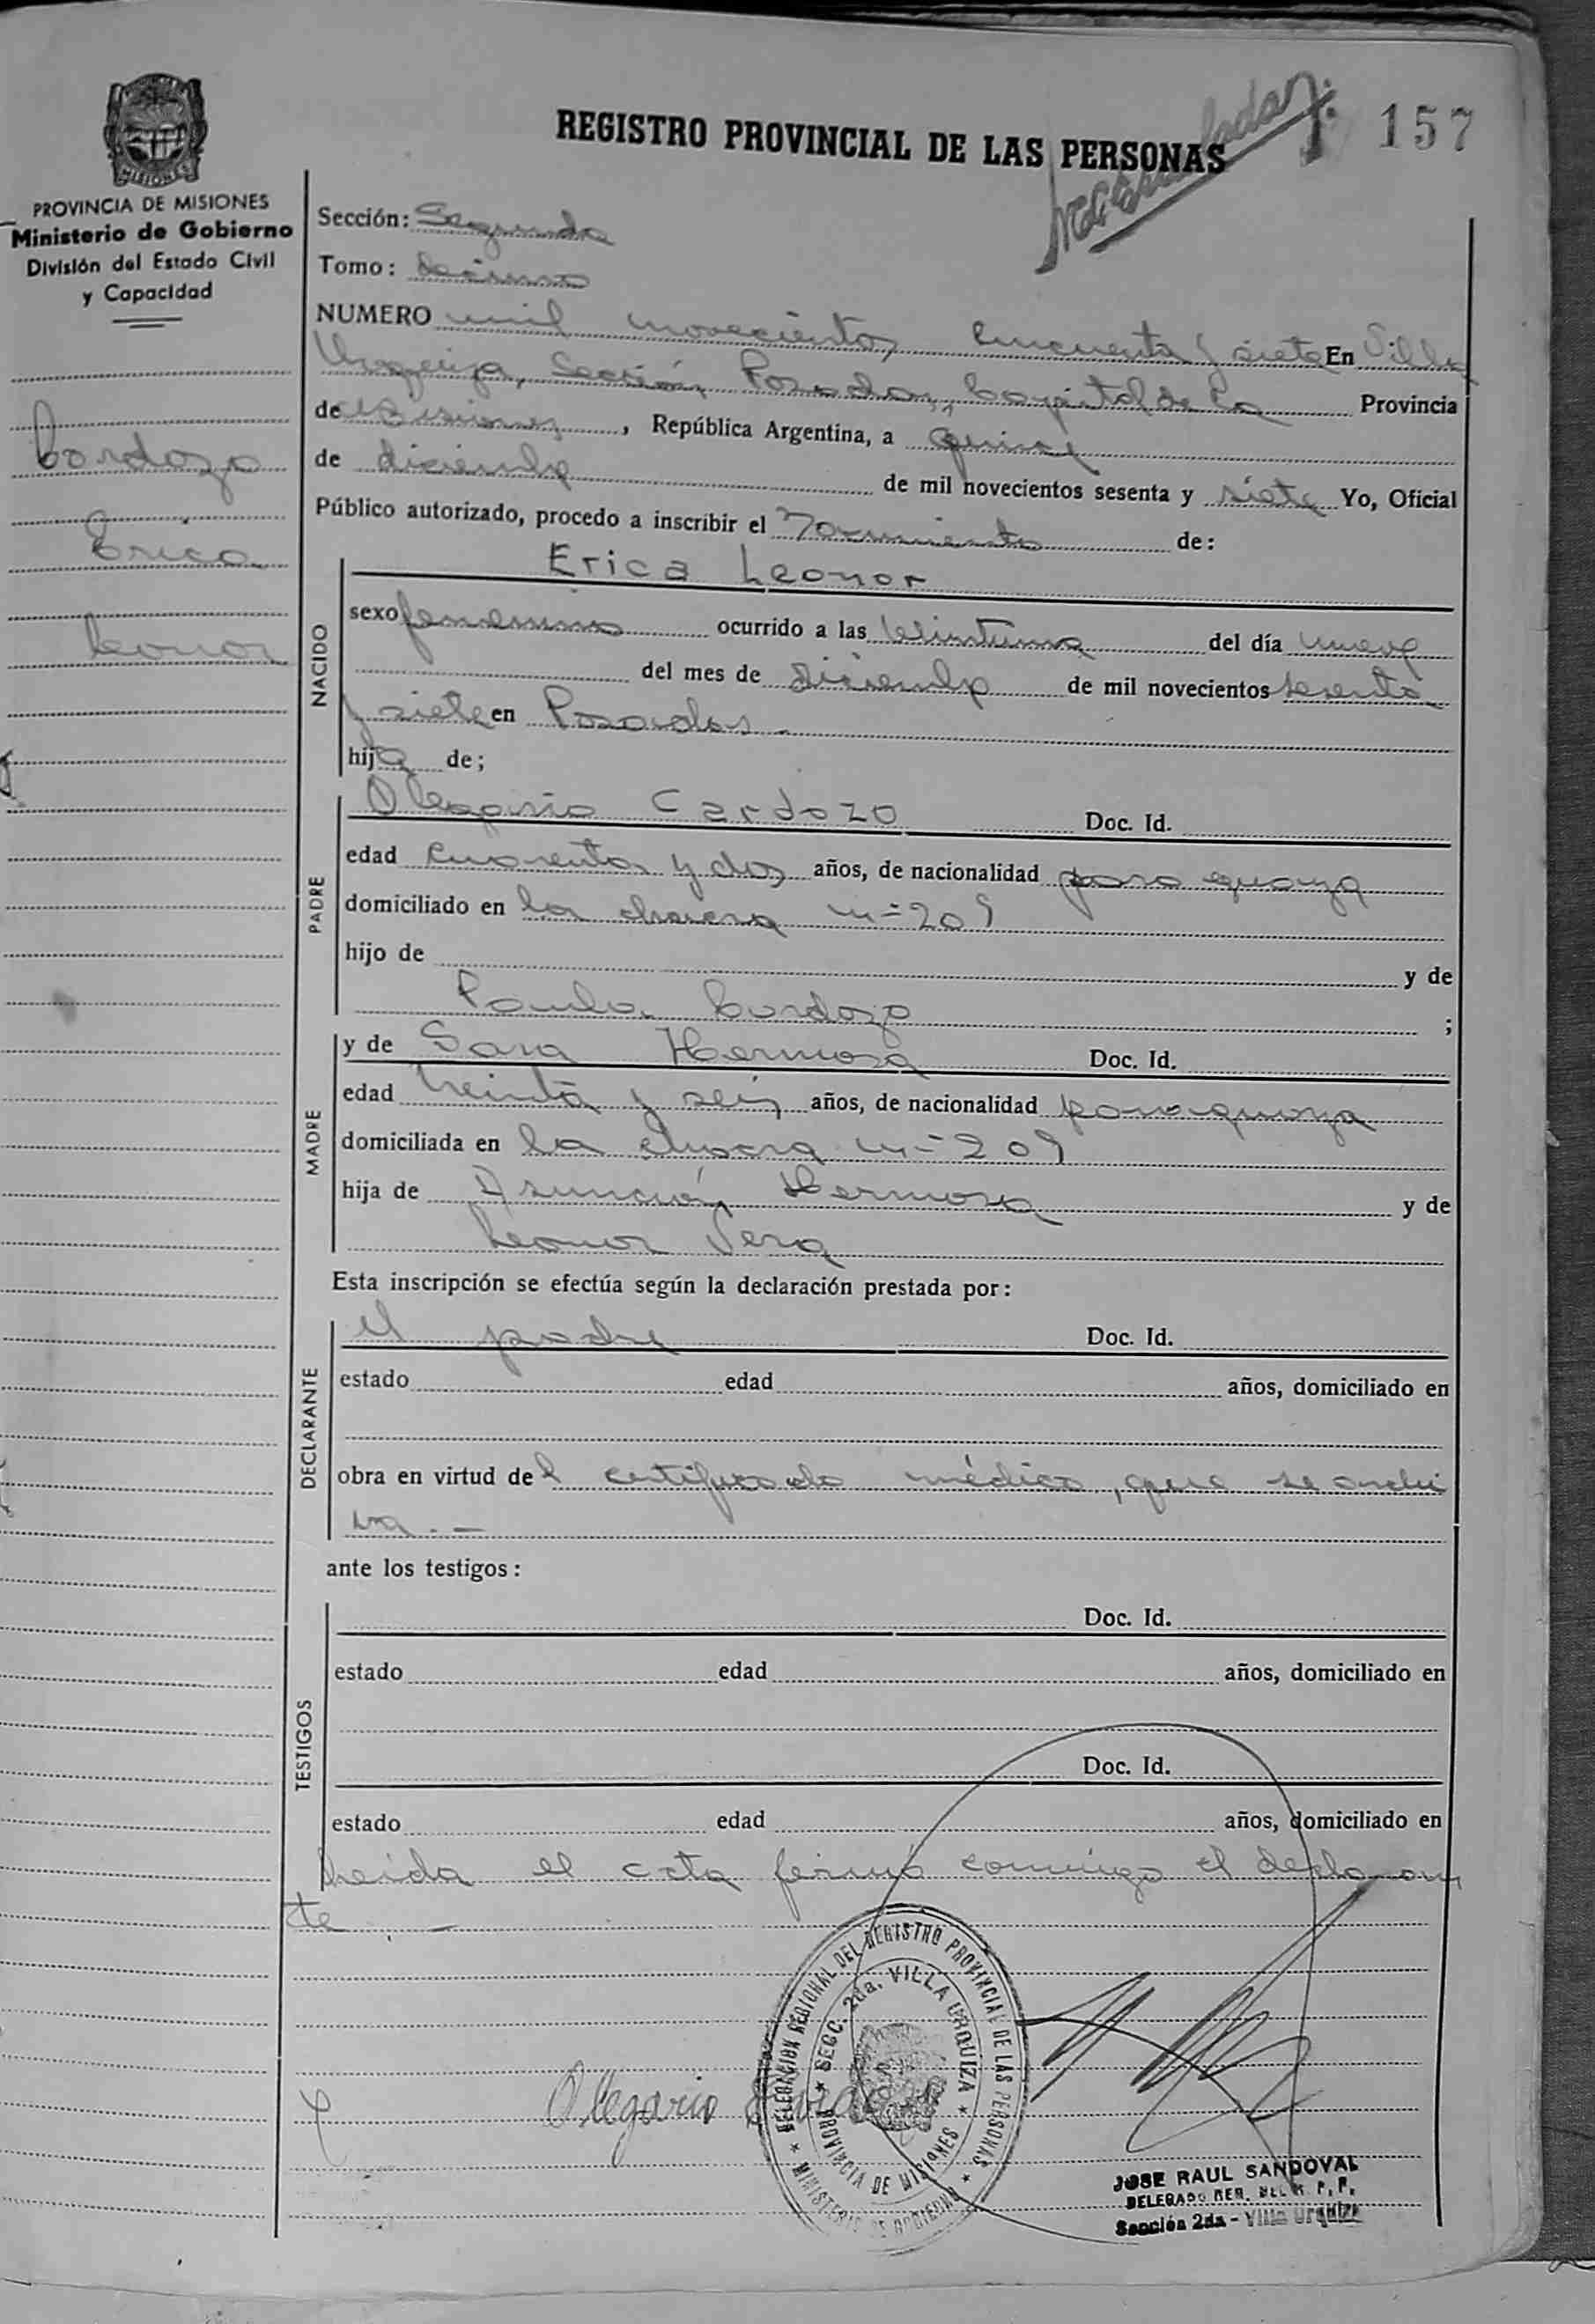 157
REGISTRO PROVINCIAL DE LAS PERSONAS
MISIONES
PROVINCIA DE MISIONES
Ministerio de Gobierno
División del Estado Civil
y Capacidad
Cardozo
Erica
Leonor
Sección: Segunda
Tomo: décimo
NUMERO mil novecientos cincuenta y siete En Villa
Urquiza, Sección, Posadas, Capital de la Provincia
de Misiones, República Argentina, a quince
de diciembre de mil novecientos sesenta y siete Yo, Oficial
Público autorizado, procedo a inscribir el Nacimiento de:
Erica Leonor
NACIDO
sexo femenino ocurrido a las veintiuna del día nueve
del mes de diciembre de mil novecientos sesenta
y siete en Posadas.
hija de;
PADRE
Olegario Cardozo Doc. Id.
edad cuarenta y dos años, de nacionalidad paraguaya
domiciliado en la chacra n=209
hijo de y de
Paula Cardozo ;
MADRE
y de Sara Hermosa Doc. Id.
edad treinta y seis años, de nacionalidad paraguaya
domiciliada en la chacra n=209
hija de Asunción Hermosa y de
Leonor Vera
Esta inscripción se efectúa según la declaración prestada por:
DECLARANTE
el padre Doc. Id.
estado edad años, domiciliado en
obra en virtud del certificado médico, que se archi
va.-
ante los testigos:
TESTIGOS
Doc. Id.
estado edad años, domiciliado en
Doc. Id.
estado edad años, domiciliado en
Leida el acta firmó conmigo el declaran
te.-
DELEGACION REGIONAL DEL REGISTRO PROVINCIAL DE LAS PERSONAS
SECC. 2da. VILLA URQUIZA
PROVINCIA DE MISIONES
MINISTERIO DE GOBIERNO
Olegario
JOSE RAUL SANDOVAL
DELEGADO REG. DEL R. P. P.
Sección 2da - Villa Urquiza